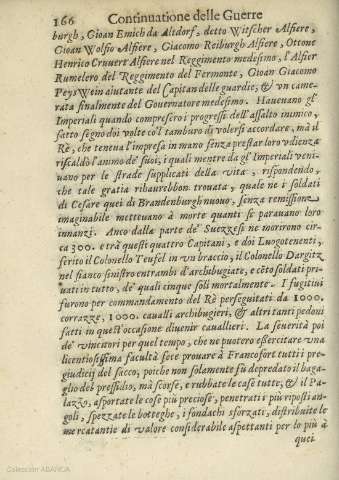 166 Continuatione delle Guerre
burgh, Gioan Emich da Altdorf, detto Witscher Alfiere,
Gioan Wolfio Alfiere, Giacomo Reiburgh Alfiere, Ottone
Henrico Cruuerr Alfiere nel Reggimento medesimo, l'Alfier
Rumelero del Reggimento del Fermonte, Gioan Giacomo
PeysWein aiutante del Capitan delle guardie, & vn came-
rata finalmente del Gouernatore medesimo. Haueuano gl'
Imperiali quando compresero i progressi dell'assalto inimico,
fatto segno doi volte co'l tamburo di volersi accordare, mà il
Rè, che teneua l'impresa in mano senza prestar loro vdienza
riscaldò l'animo de' suoi, i quali mentre da gl'Imperiali veni-
uano per le strade supplicati della vita, rispondendo,
che tale gratia ribaurebbon trouata, quale ne i soldati
di Cesare quei di Brandenburgh nuouo, senza remissione
imaginabile metteuano à morte quanti se parauano loro
innanzi. Anco dalla parte de' Suezzesi ne morirono cir-
ca 300. e trà questi quattro Capitani, e doi Luogotenenti,
ferito il Colonello Teufel in vn braccio, il Colonello Dargitz
nel fianco sinistro entrambi d'archibugiate, e cēto soldati pri-
uati in tutto, de' quali cinque soli mortalmente. I fugitiui
furono per commandamento del Rè perseguitati da 1000.
corrazze, 1000. caualli archibugieri, & altri tanti pedoni
fatti in quest'occasione diuenir cauallieri. La seuerità poi
de' vincitori per quel tempo, che ne puotero essercitare vna
licentiosissima facultà fece prouare à Francofort tutti i pre-
giudicij del sacco, poiche non solamente fù depredato il baga-
glio del pressidio, mà scorse, e rubbate le case tutte, & il Pa-
lazzo, asportate le cose più preciose, penetrati i più riposti an-
goli, spezzate le botteghe, i fondachi sforzati, distribuite le
mercatantie di valore considerabile aspettanti per lo più à
quei
Colección ABANCA